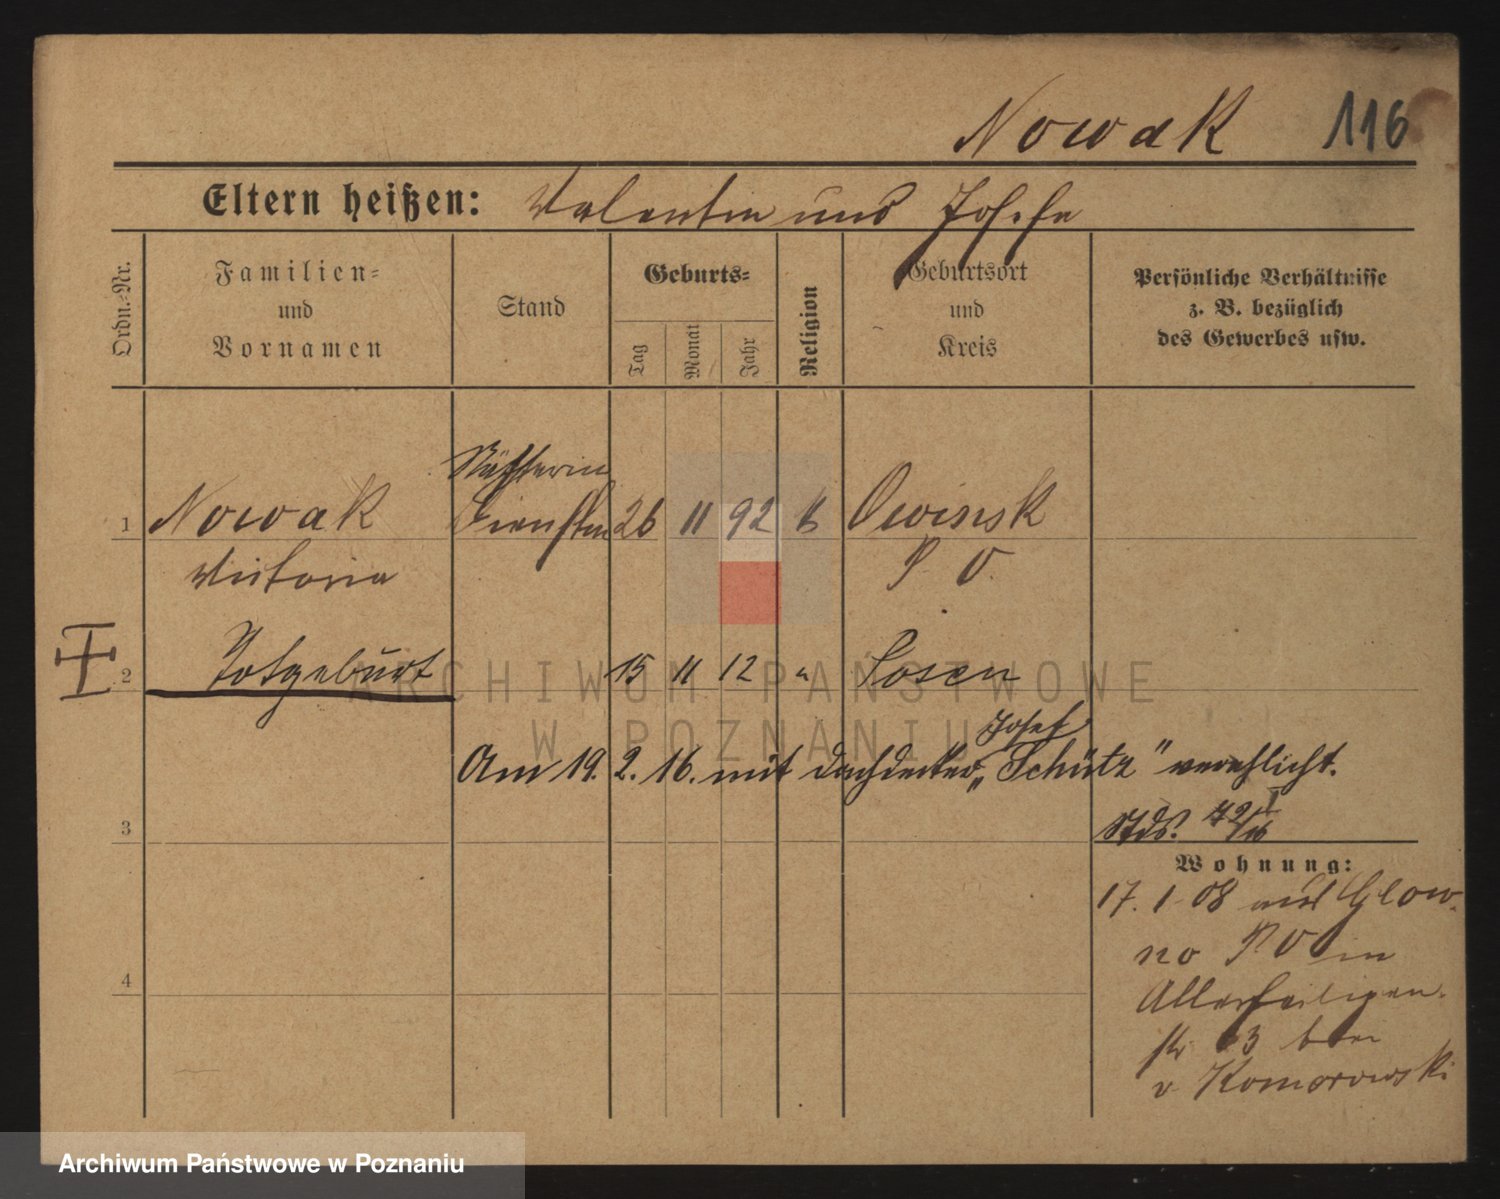 Nowak 116
Eltern heißen: Valentin und Josefa
Ordn.-Nr.
Familien-
und
Vornamen
Stand
Geburts-
Tag
Monat
Jahr
Religion
Geburtsort
und
Kreis
Persönliche Verhältnisse
z. B. bezüglich
des Gewerbes usw.
Nähterin
1 Nowak 26 11 92 k Owinsk
Victoria P O.
2 Totgeburt 15 11 12 " Posen
Josef
Am 19. 2. 16. mit Dachdecker „Schütz" verehlicht.
3
Wohnung:
17. 1 08 aus Glow-
no P O in
4
Allerheiligen-
str 3 bei
v Komorowski
ARCHIWUM PAŃSTWOWE
W POZNANIU
Archiwum Państwowe w Poznaniu